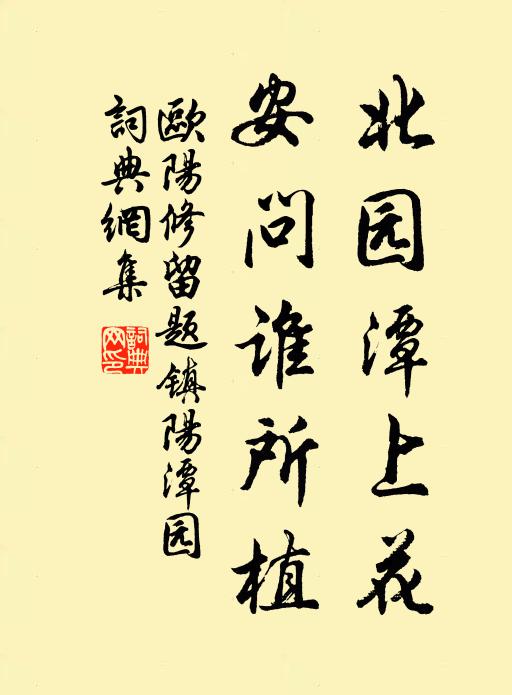 北园潭上花
安问谁所植
歐陽修留题镇陽潭园
詞典網集
詞典网印